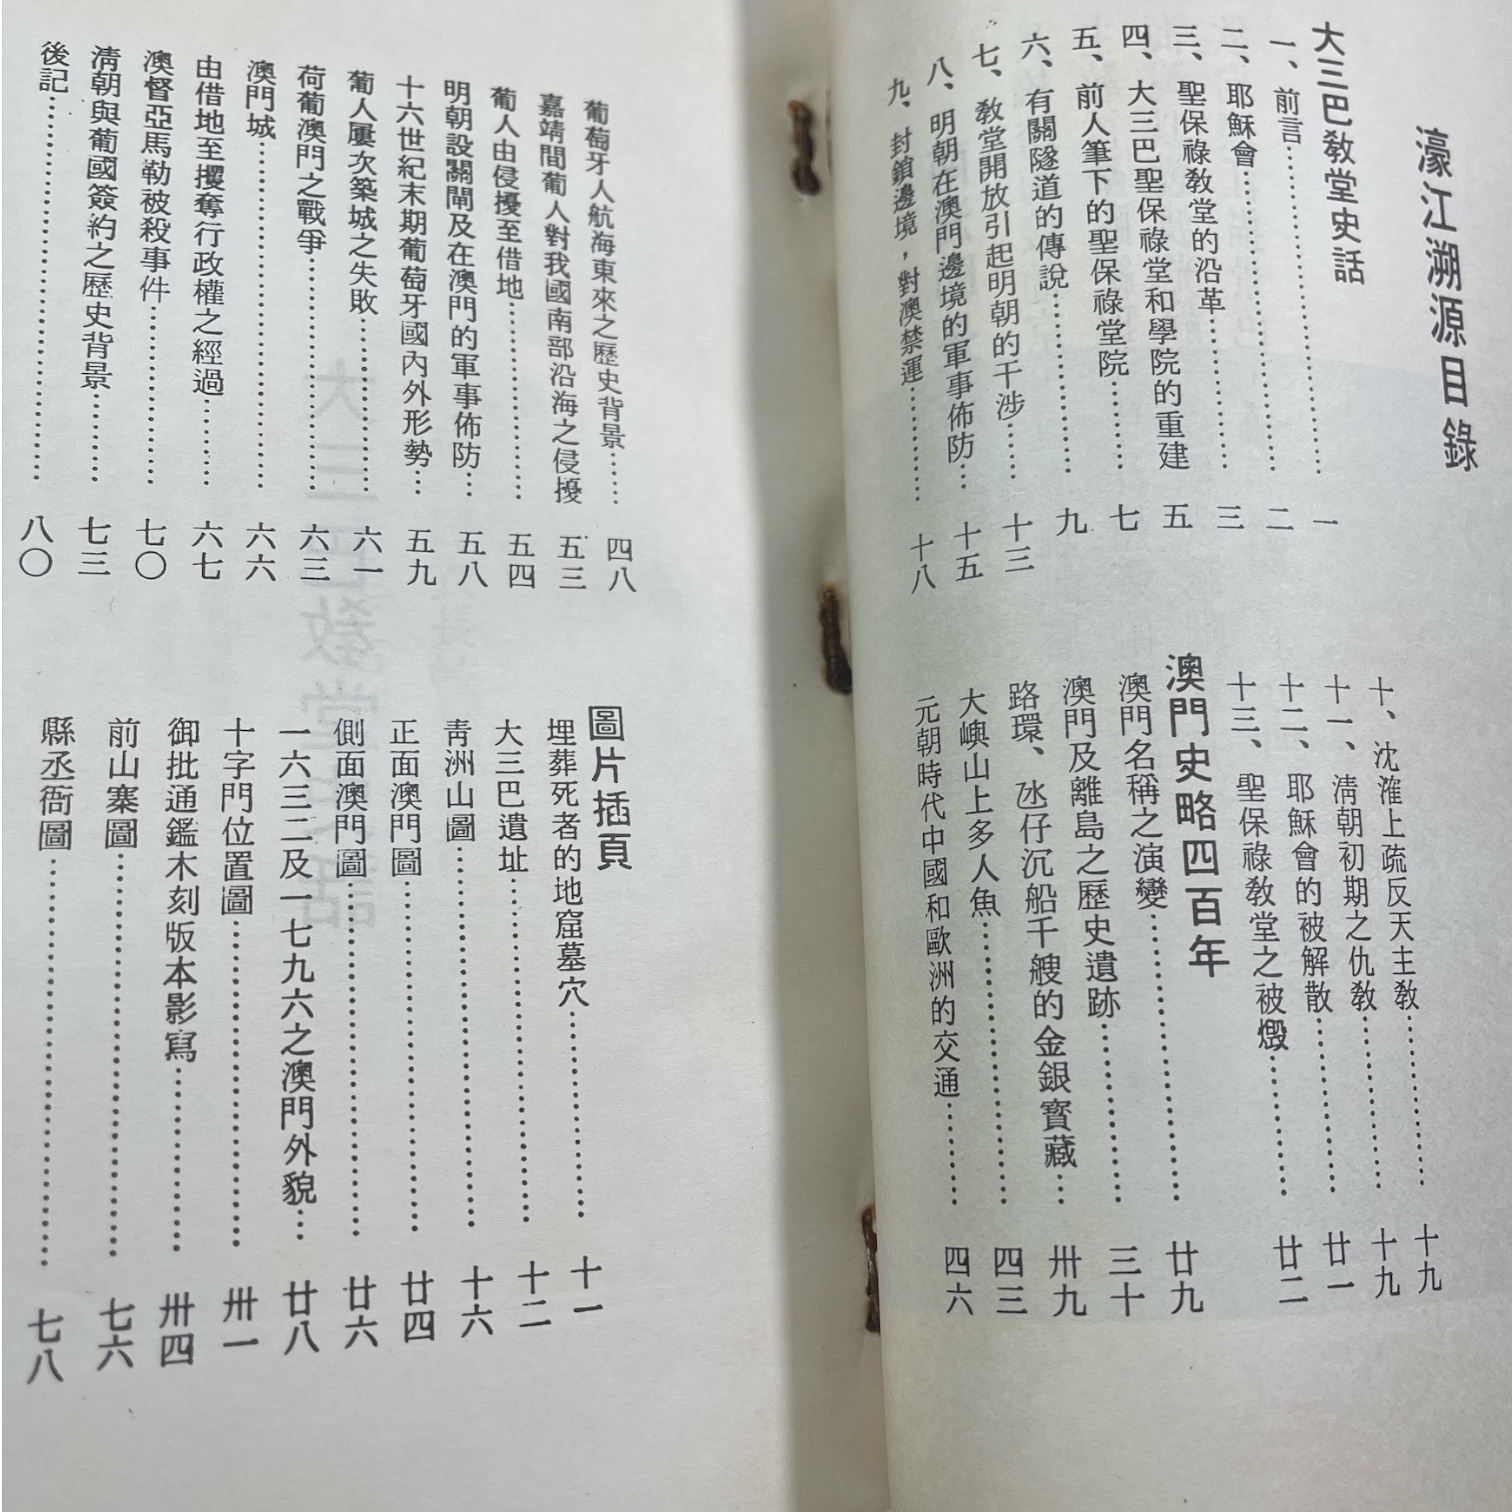 濠江溯源目錄
大三巴教堂史話
一、前言…………一
二、耶穌會…………二
三、聖保祿教堂的沿革…………三
四、大三巴聖保祿堂和學院的重建 五
五、前人筆下的聖保祿堂院…………七
六、有關隧道的傳說…………九
七、教堂開放引起明朝的干涉……十三
八、明朝在澳門邊境的軍事佈防…十五
九、封鎖邊境，對澳禁運…………十八
十、沈㴶上疏反天主教…………十九
十一、清朝初期之仇教…………十九
十二、耶穌會的被解散…………廿一
十三、聖保祿教堂之被燬…………廿二
澳門史略四百年
澳門名稱之演變…………廿九
澳門及離島之歷史遺跡…………三十
路環、氹仔沉船千艘的金銀寶藏…卅九
大嶼山上多人魚…………四三
元朝時代中國和歐洲的交通…………四六
葡萄牙人航海東來之歷史背景……四八
嘉靖間葡人對我國南部沿海之侵擾 五三
葡人由侵擾至借地…………五四
明朝設關閘及在澳門的軍事佈防…五八
十六世紀末期葡萄牙國內外形勢…五九
葡人屢次築城之失敗…………六一
荷葡澳門之戰爭…………六三
澳門城…………六六
由借地至攫奪行政權之經過…………六七
澳督亞馬勒被殺事件…………七〇
清朝與葡國簽約之歷史背景…………七三
後記…………八〇
圖片插頁
埋葬死者的地窟墓穴…………十一
大三巴遺址…………十二
青洲山圖…………十六
正面澳門圖…………廿四
側面澳門圖…………廿六
一六三二及一七九六之澳門外貌…廿八
十字門位置圖…………卅一
御批通鑑木刻版本影寫…………卅四
前山寨圖…………七六
縣丞衙圖…………七八